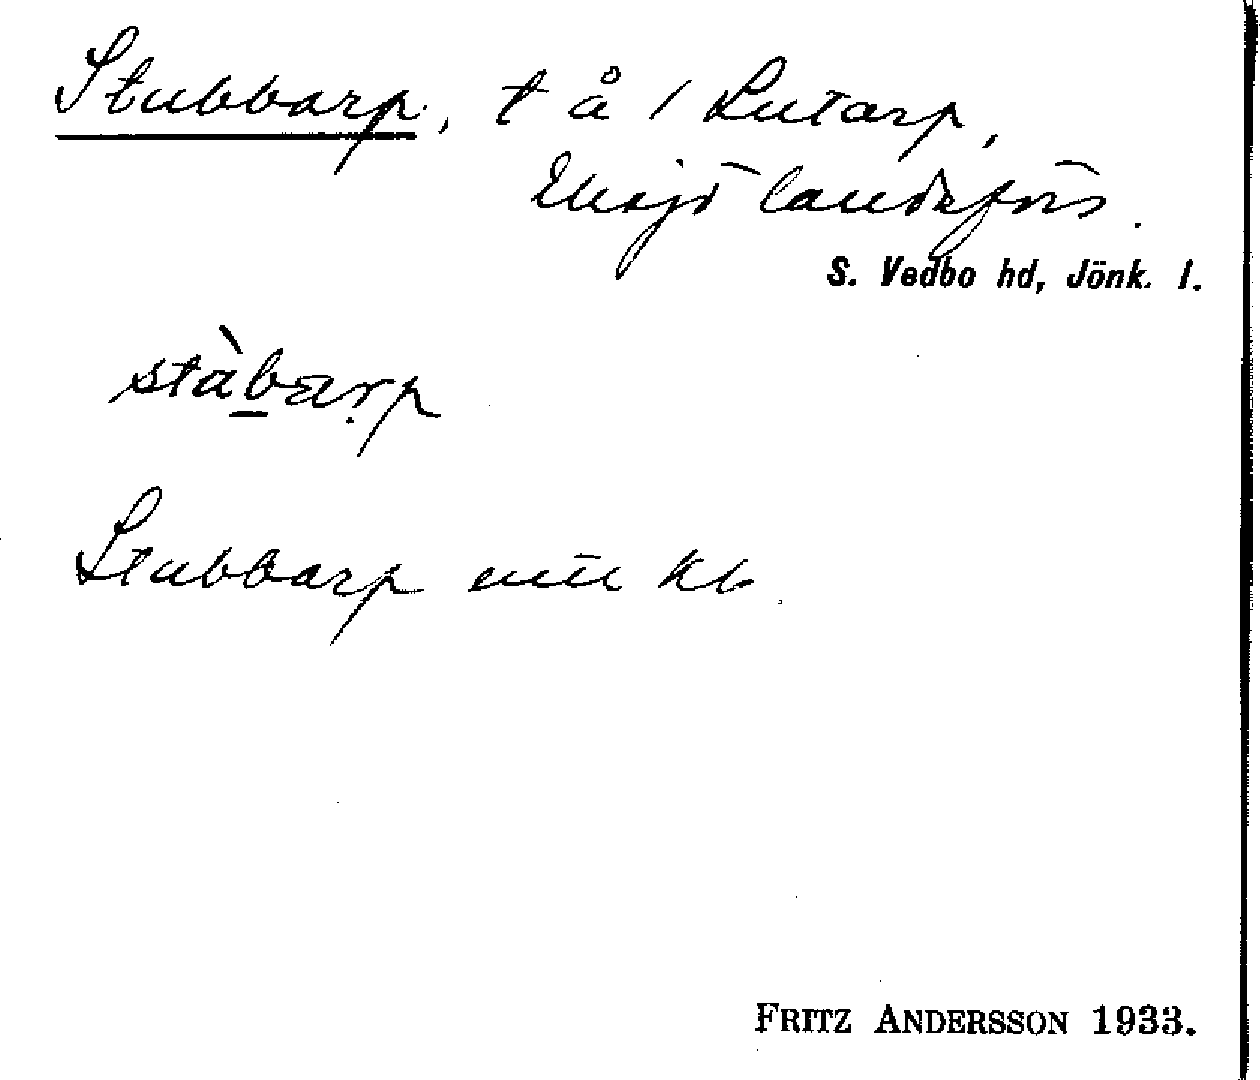 Stubbarp, t å 1 Lutarp,
Eksjö landsförs.
S. Vedbo hd, Jönk. l.
stàbarp
Stubbarp
FRITZ ANDERSSON 1933.